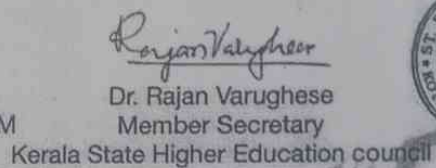 Rajan Varughese
Dr. Rajan Varughese
M Member Secretary
Kerala State Higher Education council
ST.